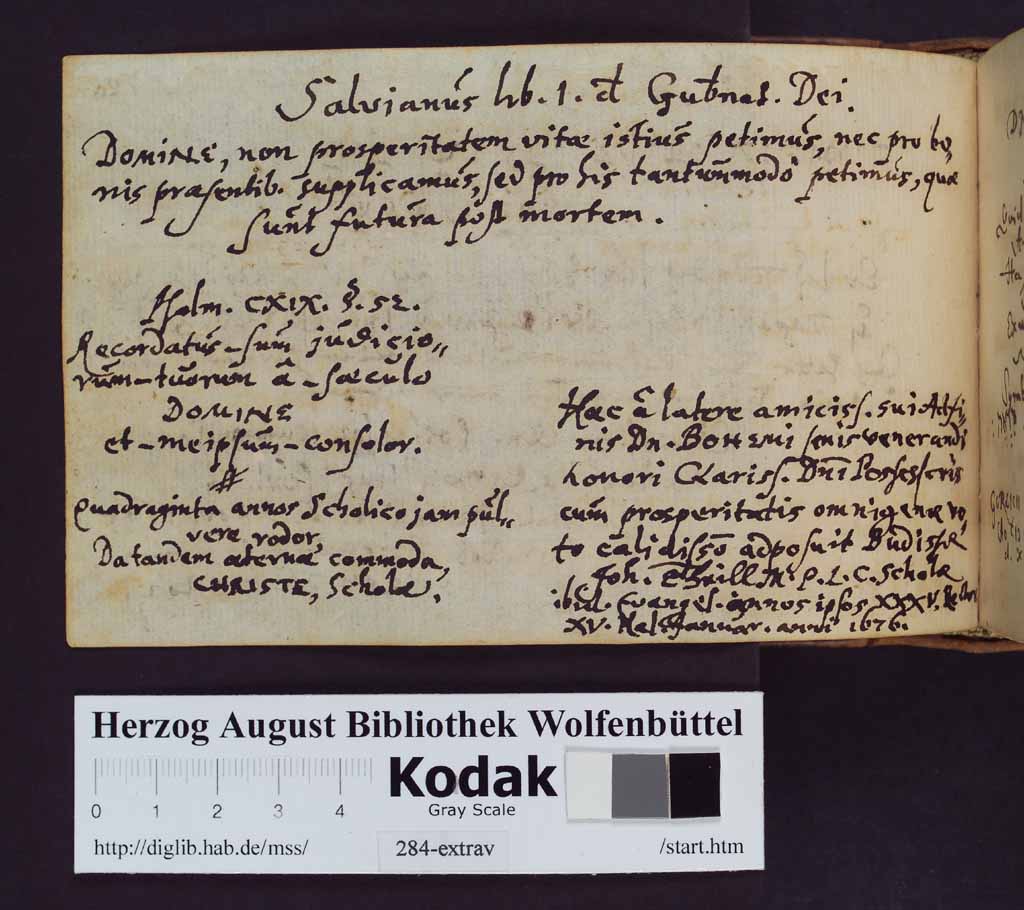 Salvianus lib. 1. d Gubnat. Dei.
DOMINE, non prosperitatem vitæ istius petimus, nec pro bo,
nis præsentib. supplicamus, sed pro his tantummodò petimus, quæ
sunt futura post mortem.
Psalm. CXIX. §. 52.
Recordatus-sum judicio,,
rum-tuorum â-sæculo
DOMINE
et-meipsum-consolor.
Quadraginta annos Scholico jam pul,,
vere rodor,
Da tandem æternæ commoda,
CHRISTE, Scholæ.
Hæc â latere amiciss. sui Affi,
nis Dn. BOHEMI senis venerandi
honori Clariss. Dni Possessoris
cum prosperitatis omnigenæ vo,
to calidissô adposuit Budissæ
Joh. P. L. C. Scholæ
ibid. Evangel. annos ipsos XXXV.
XV. Kal. Januar. anni 1676.
Herzog August Bibliothek Wolfenbüttel
0 1 2 3 4
Kodak
Gray Scale
http://diglib.hab.de/mss/ 284-extrav /start.htm